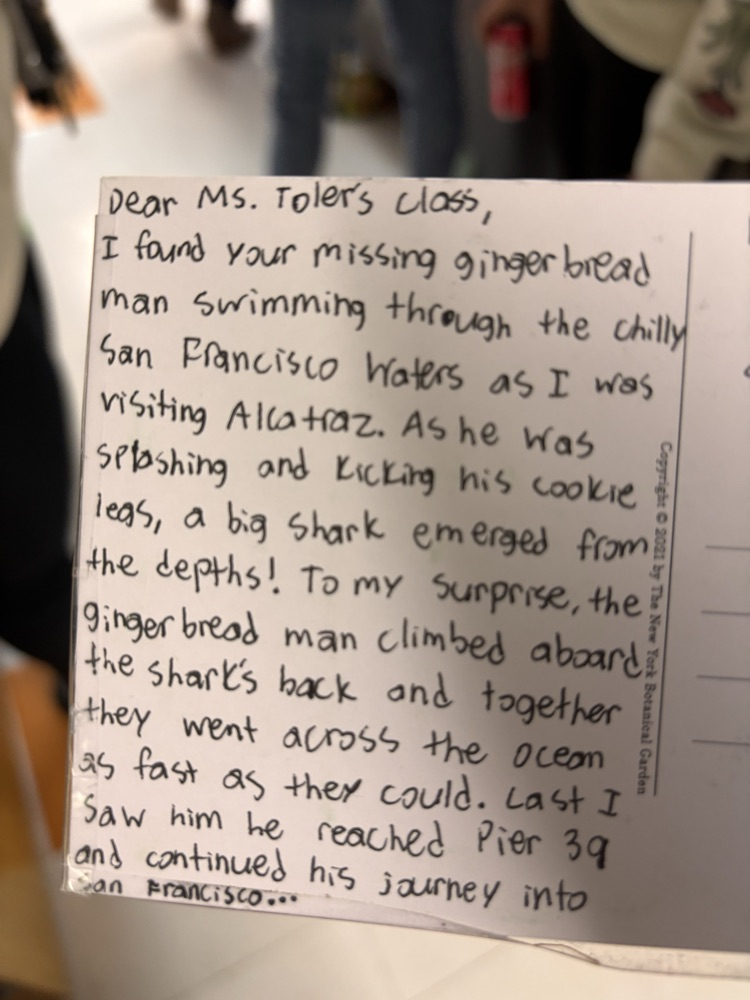 Dear Ms. Toler's class,
I found your missing gingerbread
man swimming through the chilly
San Francisco waters as I was
visiting Alcatraz. As he was
splashing and kicking his cookie
legs, a big shark emerged from
the depths! To my surprise, the
gingerbread man climbed aboard
the shark's back and together
they went across the ocean
as fast as they could. Last I
saw him he reached Pier 39
and continued his journey into
San Francisco...
Copyright © 2021 by The New York Botanical Garden